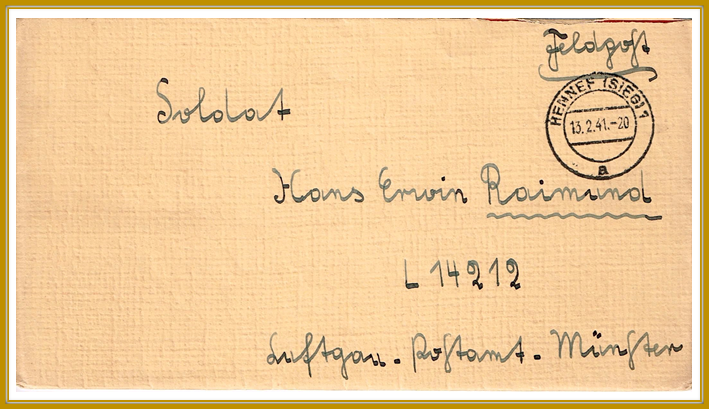 Feldpost
HENNEF (SIEG) 1
13.2.41.-20
a
Soldat
Hans Erwin Raimund
L 14212
Luftgau-Postamt-Münster